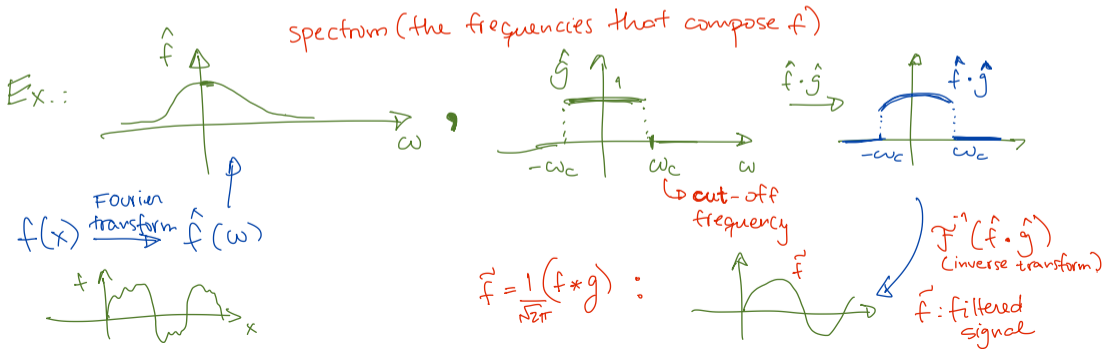 spectrum (the frequencies that compose f)
Ex.:
f̂
ω
,
ĝ
1
-ωc
ωc
ω
↳ cut-off
frequency
f̂·ĝ
f̂·ĝ
-ωc
ωc
f(x) Fourier transform f̂(ω)
f
x
f̃ = 1/√2π (f * g) :
f̃
F⁻¹(f̂·ĝ)
(inverse transform)
f̃: filtered
signal